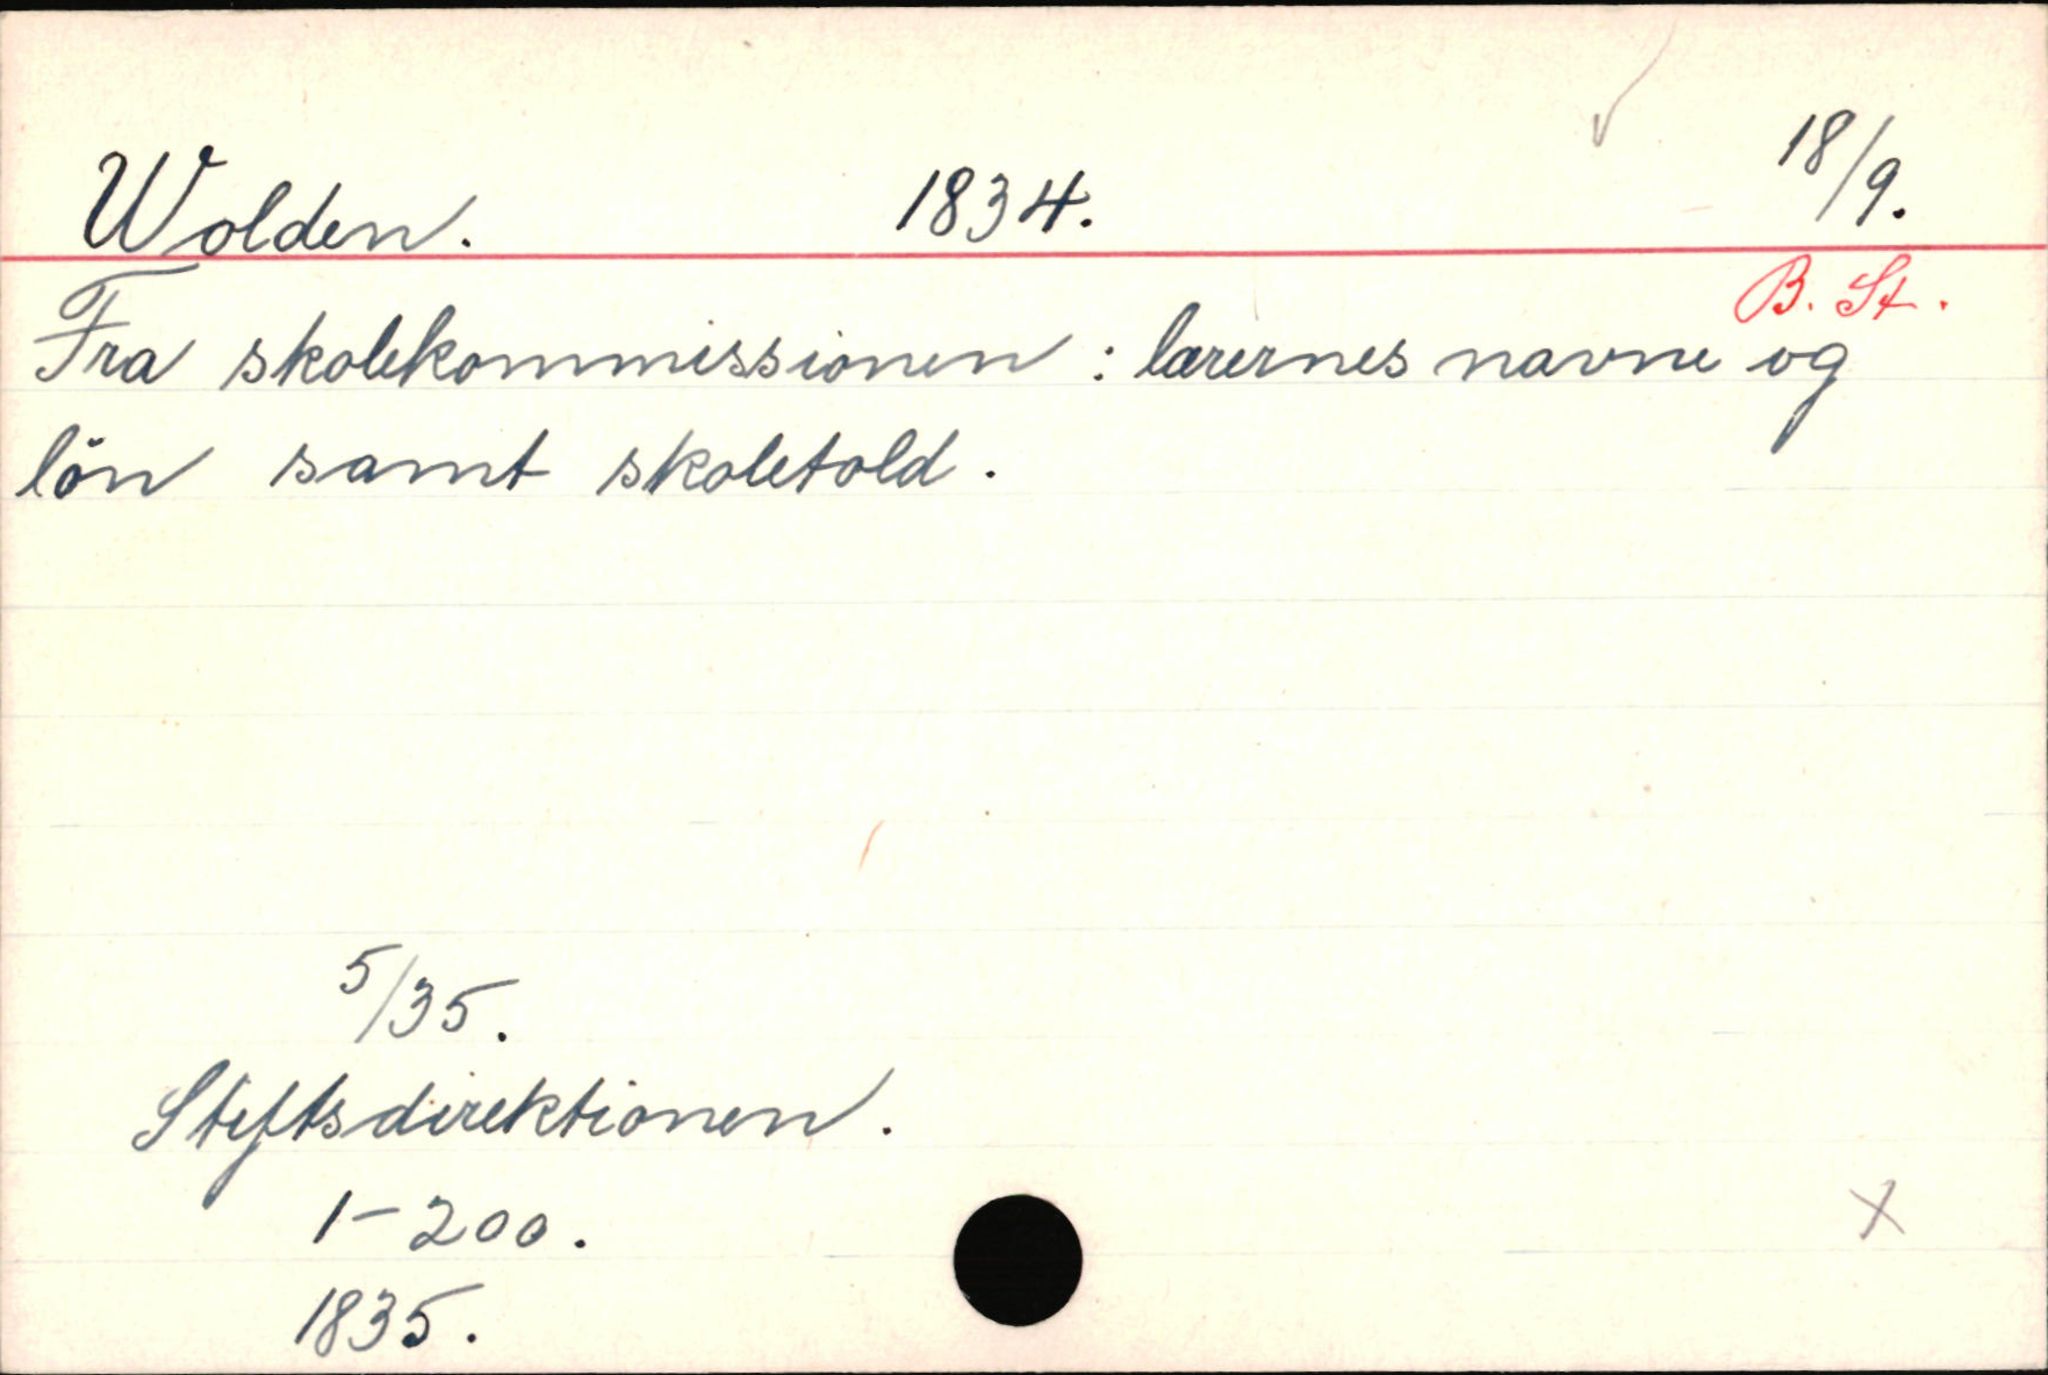 Wolden. 1834. 18/9.
B. St.
Fra skolekommissionen : lærernes navne og
lön samt skoletold.
5/35.
Stiftsdirektionen.
1-200.
1835.
X